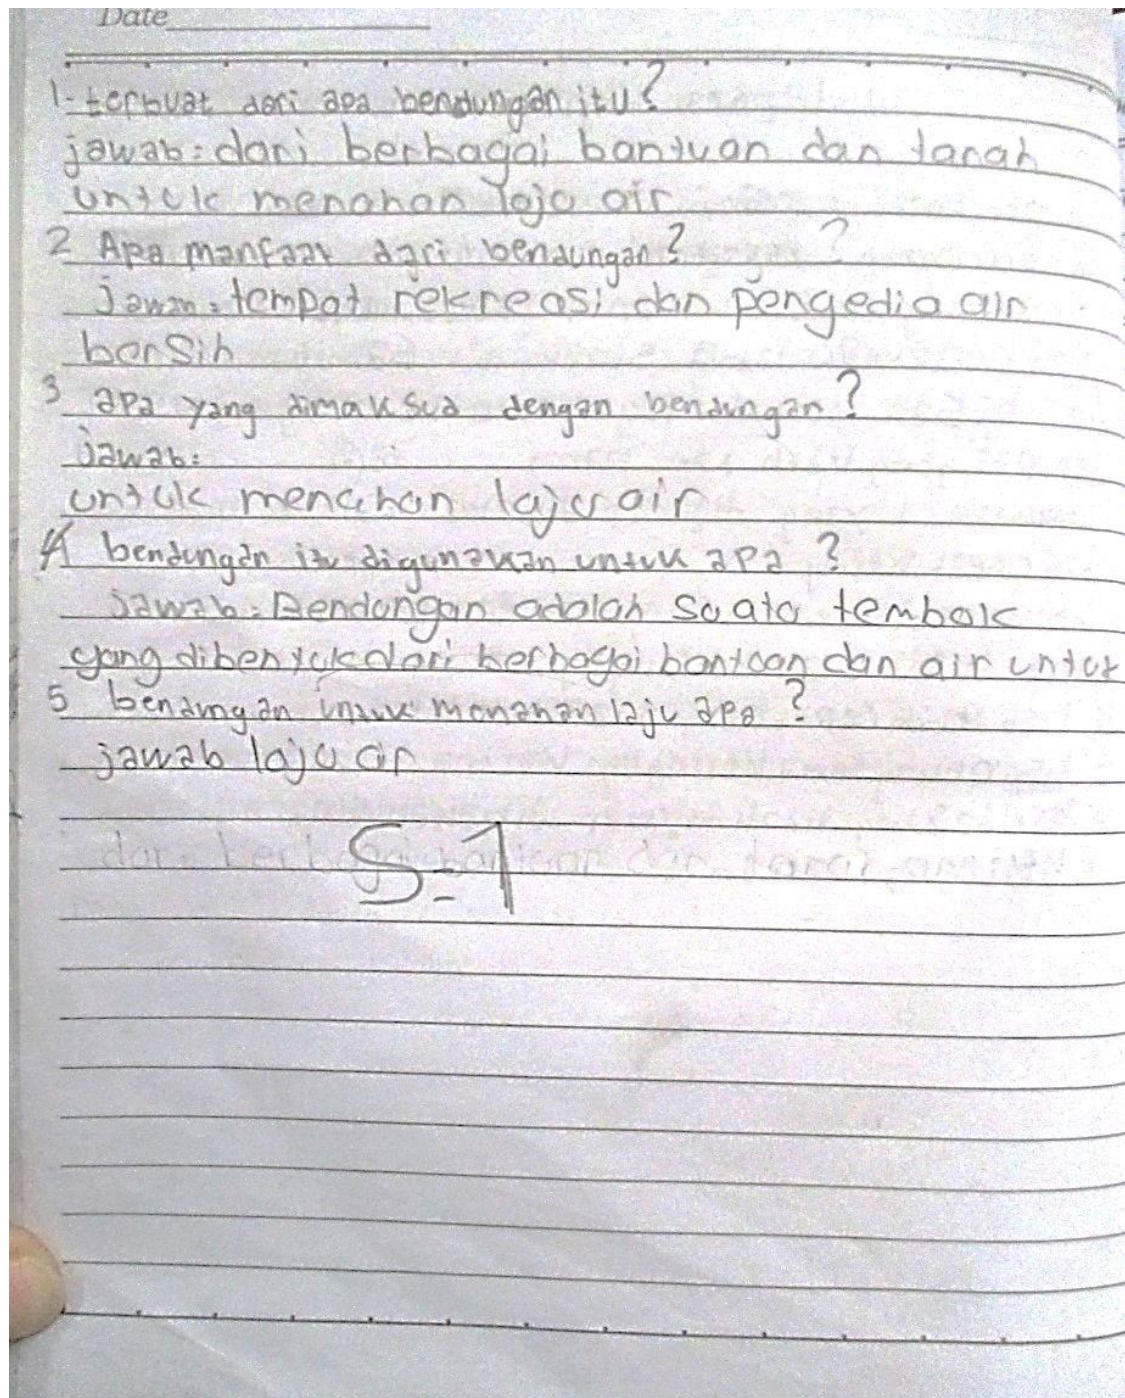 Date
1. terbuat dari apa bendungan itu?
jawab: dari berbagai bantuan dan tanah
untuk menahan laju air
2 Apa manfaat dari bendungan? ?
jawab: tempat rekreasi dan pengedia air
bersih
3 apa yang dimaksud dengan bendungan?
jawab:
untuk menahan laju air
4 bendungan itu digunakan untuk apa?
jawab: Bendungan adalah suatu tembok
yang dibentuk dari berbagai bantuan dan air untuk
5 bendungan untuk menahan laju apa?
jawab laju air
S=1